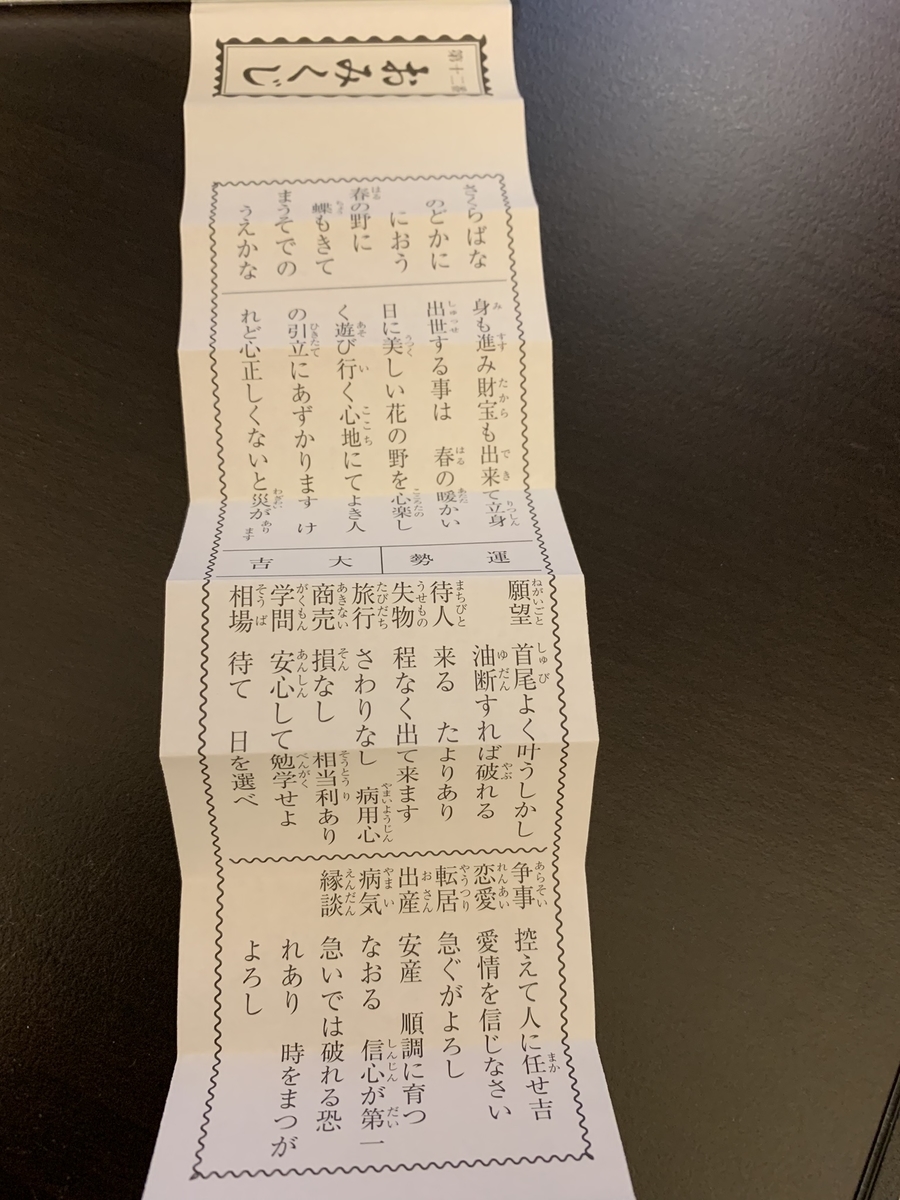 第十二番
おみくじ
さくらばな
のどかに
におう
春の野に
蝶もきて
まうそでの
うえかな
身も進み財宝も出来て立身
出世する事は 春の暖かい
日に美しい花の野を心楽し
く遊び行く心地にてよき人
の引立にあずかります け
れど心正しくないと災があります
運勢 大吉
願望 首尾よく叶うしかし
油断すれば破れる
待人 来る たよりあり
失物 程なく出て来ます
旅行 さわりなし 病用心
商売 損なし 相当利あり
学問 安心して勉学せよ
相場 待て 日を選べ
争事 控えて人に任せ吉
恋愛 愛情を信じなさい
転居 急ぐがよろし
出産 安産 順調に育つ
病気 なおる 信心が第一
縁談 急いでは破れる恐
れあり 時をまつが
よろし